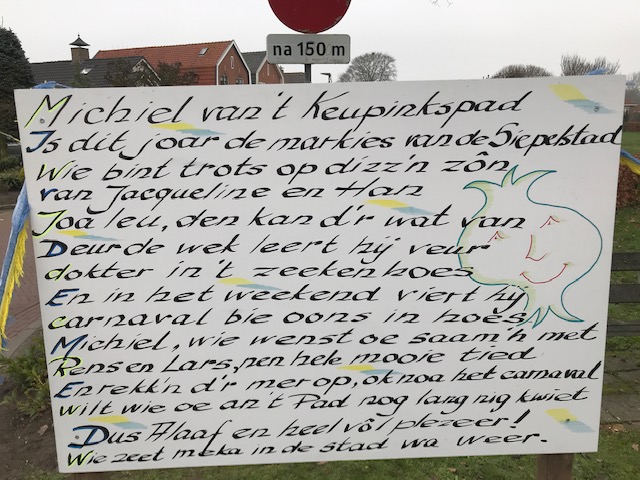 na 150 m
Michiel van't Keupinkspad
Is dit joar de markies van de Siepelstad
Wie bint trots op dizz'n zôn
van Jacqueline en Han
Joa leu, den kan d'r wat van
Deur de wek leert hij veur
dokter in't zeekenhoes
En in het weekend viert hij
carnaval bie oons in hoes
Michiel, wie wenst oe saam'n met
Rens en Lars, nen hele mooie tied
En rekk'n d'r mer op, ok noa het carnaval
wilt wie oe an't Pad nog lang nig kwiet
Dus Alaaf en heel vôl plezeer!
Wie zeet meka in de stad wa weer.